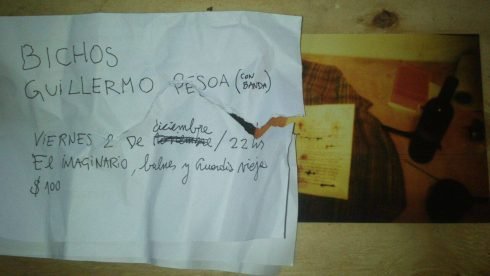 BICHOS
GUILLERMO PESOA (CON BANDA)
VIERNES 2 DE diciembre / 22 hs
El IMAGINARIO, bulnes y Guardia vieja
$ 100